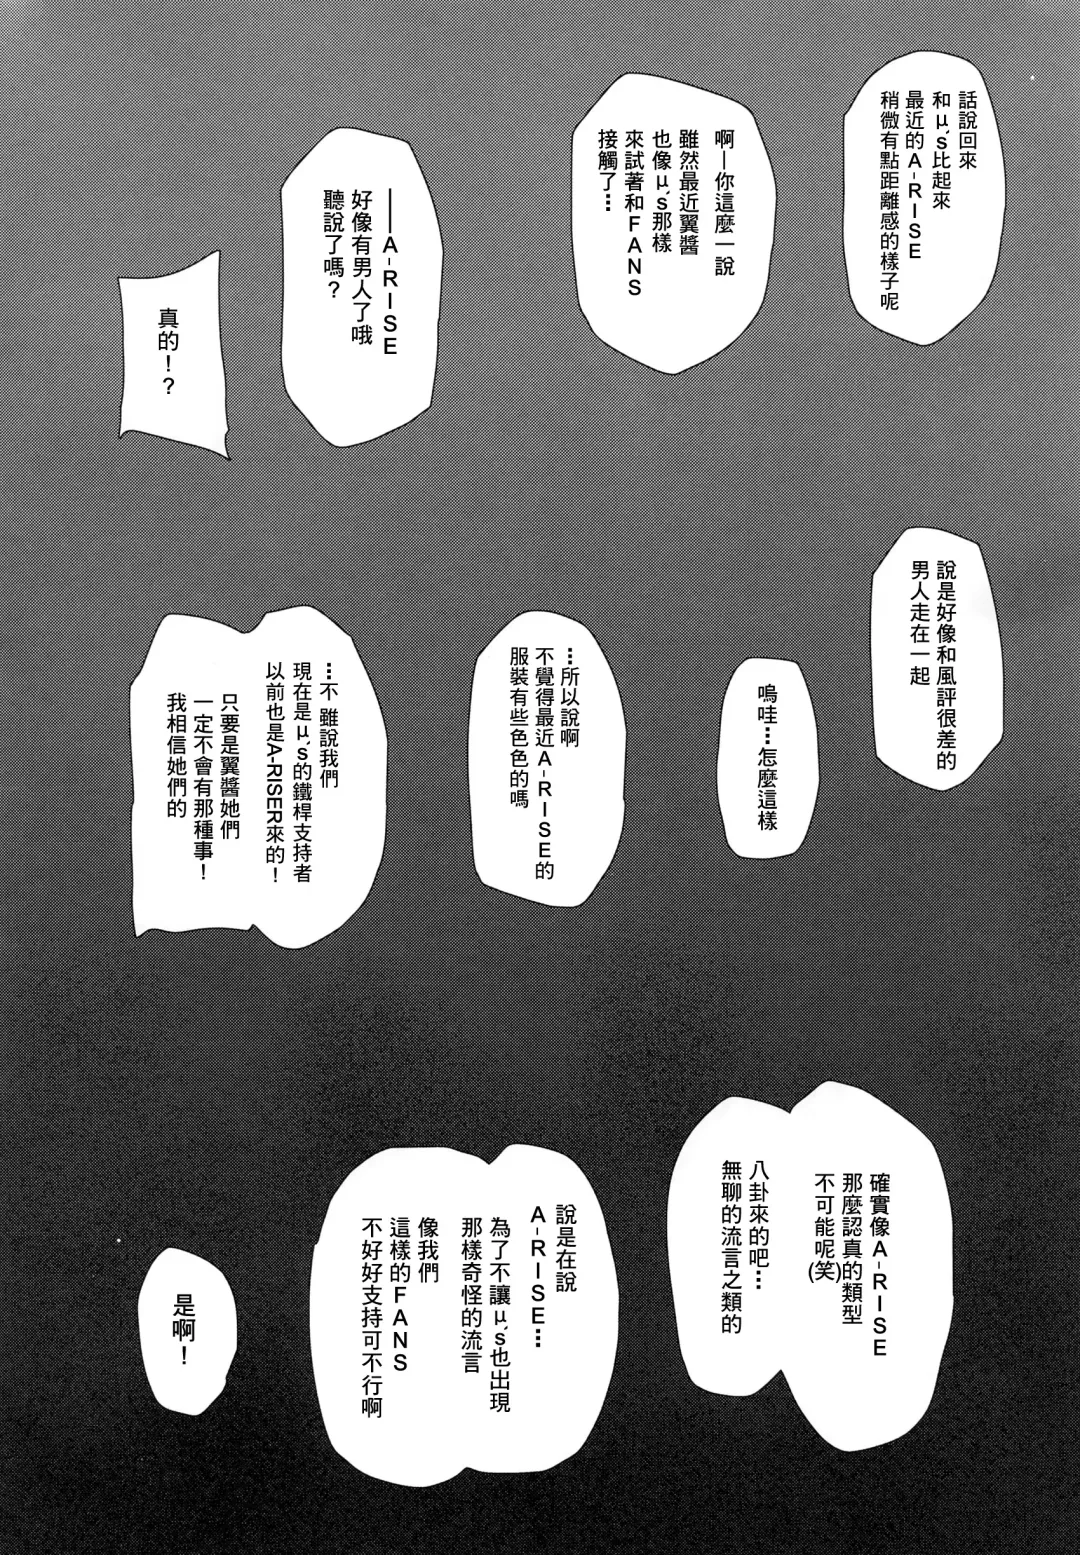 話說回來
和μ's比起來
最近的A-RISE
稍微有點距離感的樣子呢
啊—你這麼一說
雖然最近翼醬
也像μ's那樣
來試著和FANS
接觸了…
——A-RISE
好像有男人了哦
聽說了嗎？
真的！？
說是好像和風評很差的
男人走在一起
嗚哇…怎麼這樣
…所以說啊
不覺得最近A-RISE的
服裝有些色色的嗎
…不 雖說我們
現在是μ's的鐵桿支持者
以前也是A-RISER來的！
只要是翼醬她們
一定不會有那種事！
我相信她們的
確實像A-RISE
那麼認真的類型
不可能呢(笑)
八卦來的吧…
無聊的流言之類的
說是在說
A-RISE…
為了不讓μ's也出現
那樣奇怪的流言
像我們
這樣的FANS
不好好支持可不行啊
是啊！